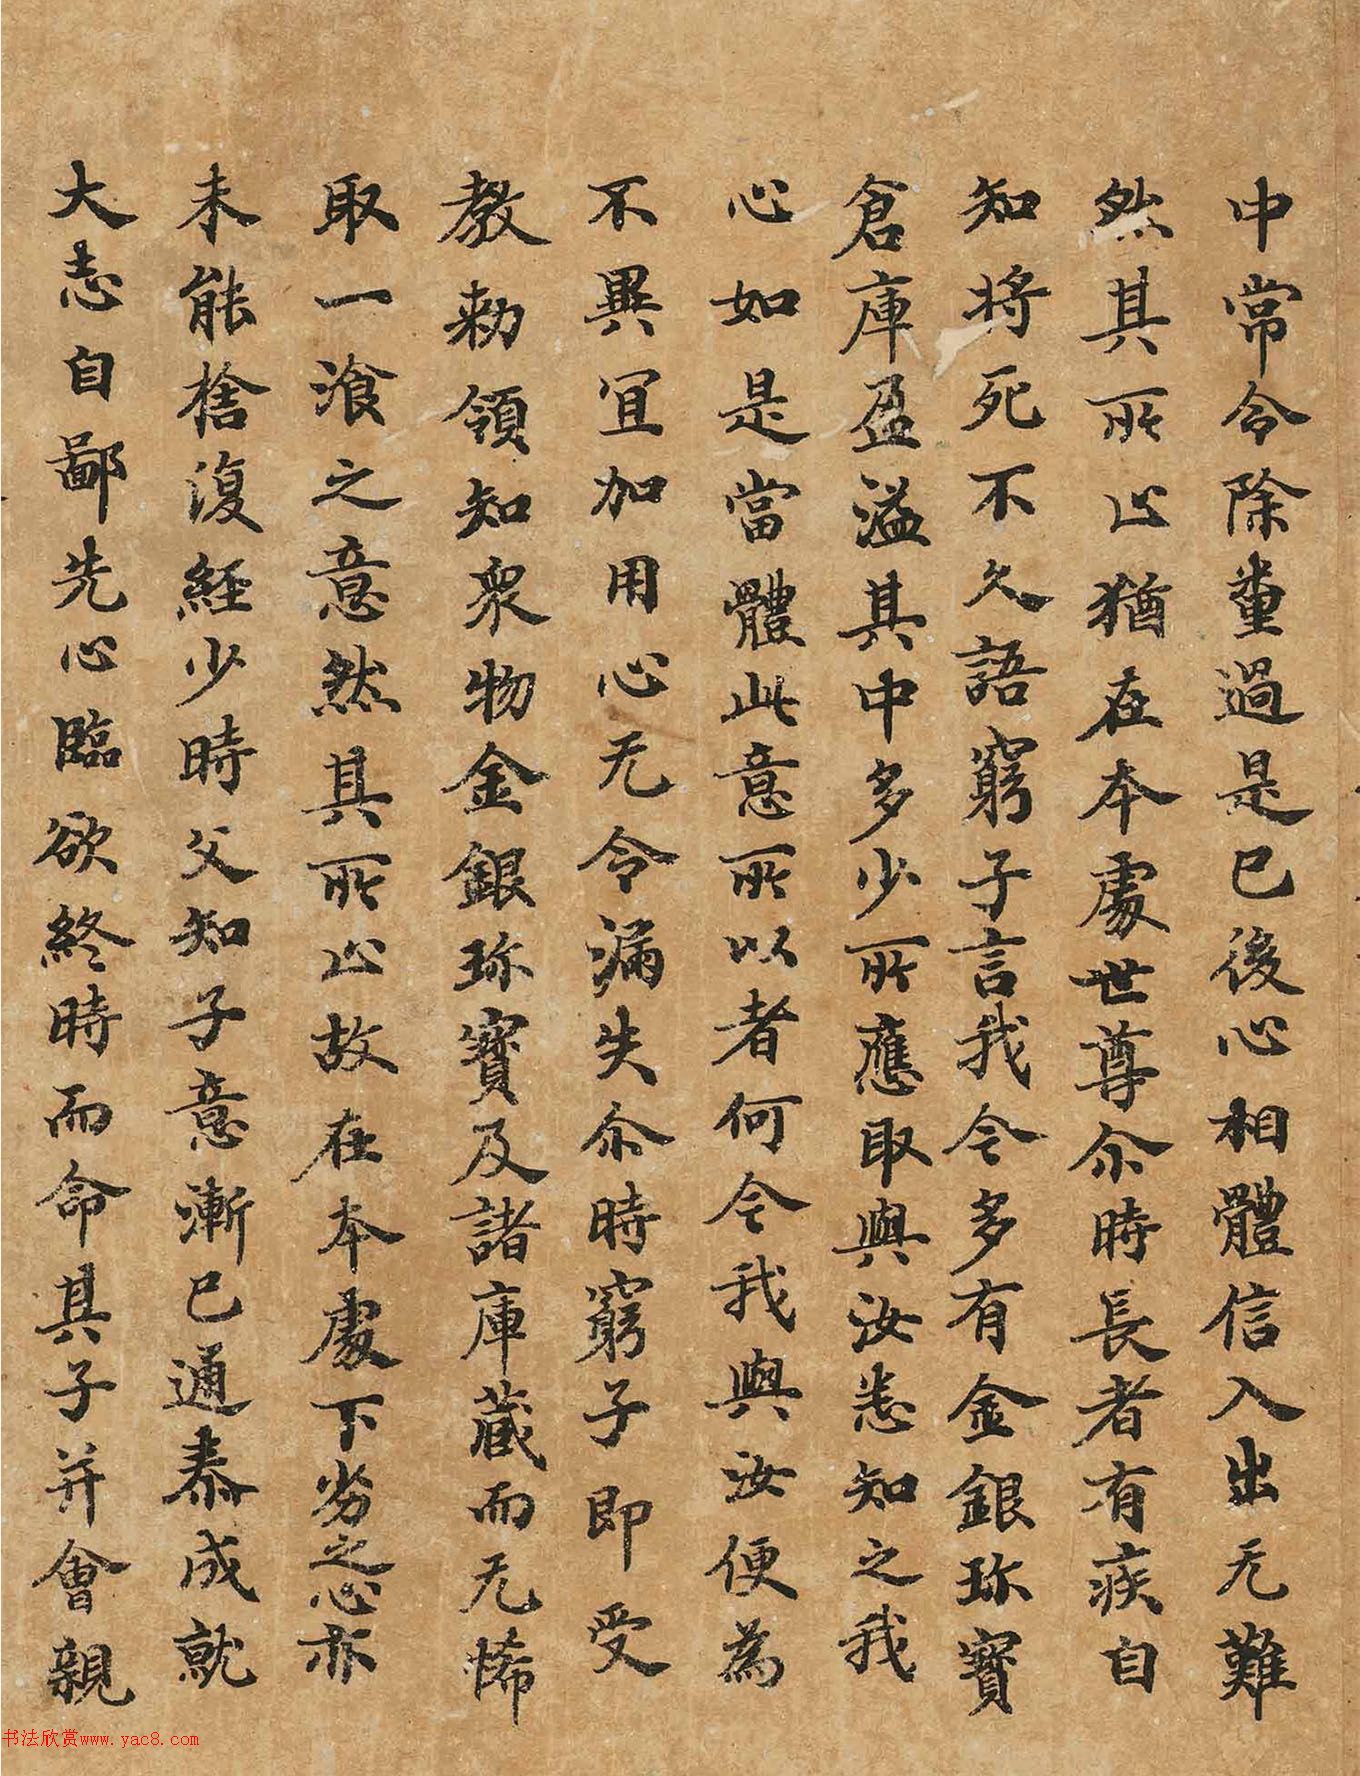 中常令除糞過是已後心相體信入出无難
然其所止猶在本處世尊尒時長者有疾自
知將死不久語窮子言我今多有金銀珎寶
倉庫盈溢其中多少所應取與汝悉知之我
心如是當體此意所以者何今我與汝便為
不異宜加用心无令漏失尒時窮子即受
教勑領知衆物金銀珎寶及諸庫藏而无悕
取一飡之意然其所止故在本處下劣之心亦
未能捨復經少時父知子意漸已通泰成就
大志自鄙先心臨欲終時而命其子并會親
书法欣赏www.yac8.com